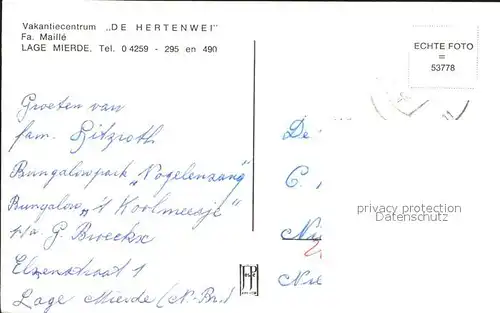 Vakantiecentrum „DE HERTENWEI"
Fa. Maillé
LAGE MIERDE. Tel. 0 4259 - 295 en 490
ECHTE FOTO
=
53778
Groeten van
fam. Litzroth
Bungalowpark „Vogelenzang"
Bungalow „'t Koolmeesje"
p/a G. Broeckx
Elzenstraat 1
Lage Mierde (N.-Br.)
De
C.
privacy protection
Datenschutz